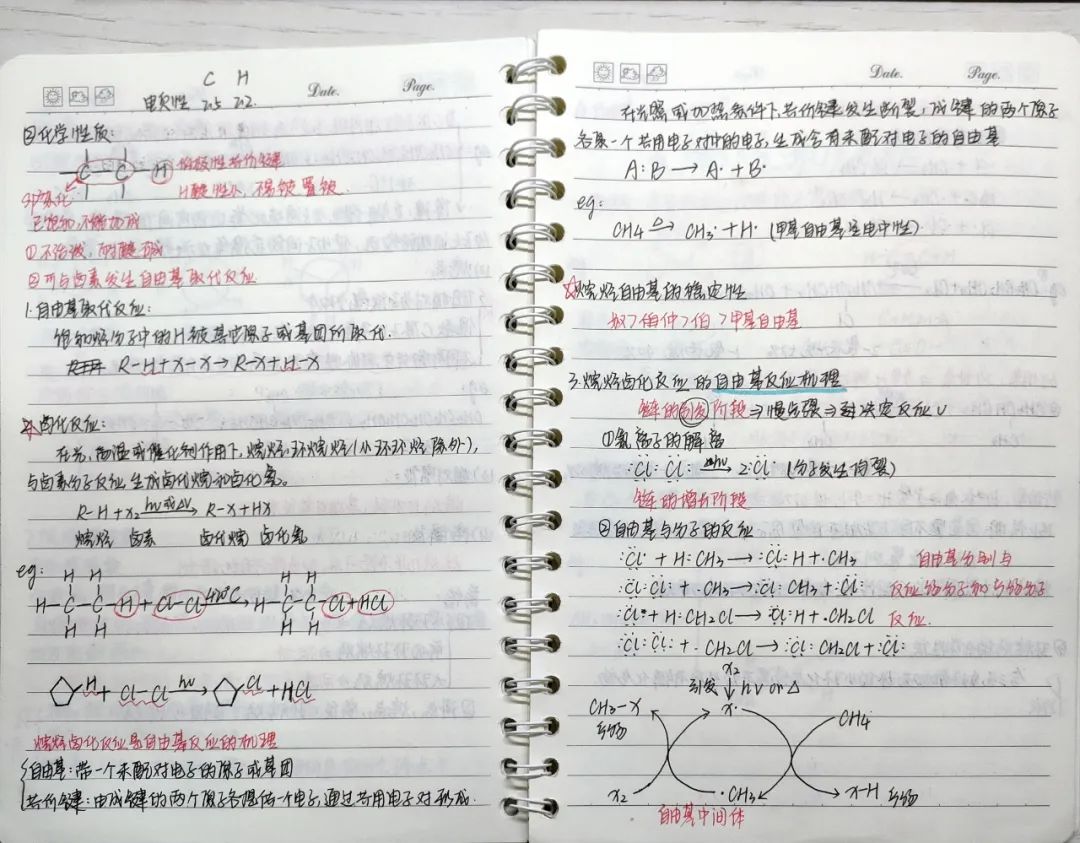 Date.
Page.
C H
电负性 2.5 2.2
②化学性质:
-C-C-H 低极性共价键
H酸性小,不易被置换
已饱和,不能加成
①不活泼,耐酸碱
②可与卤素发生自由基取代反应
1.自由基取代反应:
饱和烃分子中的H被其它原子或基团所取代.
R-H+X-X→R-X+H-X
2.卤化反应:
在光、高温或催化剂作用下,烷烃、环烷烃(小环环烃除外),
与卤素分子反应生成卤代烷和卤化氢。
R-H+X₂ hν或ΔV→ R-X+HX
烷烃 卤素 卤代烷 卤化氢
eg:
H H H H
H-C-C-H+Cl-Cl 410°C→ H-C-C-Cl+HCl
H H H H
H+Cl-Cl hν→ Cl+HCl
烷烃卤化反应是自由基反应的机理
自由基:带一个未配对电子的原子或基团
共价键:由成键的两个原子各提供一个电子,通过共用电子对形成.
Date.
Page.
在光照或加热条件下,共价键发生断裂,成键的两个原子
各保一个共用电子对中的电子,生成含有未配对电子的自由基
A:B→A·+B·
eg:
CH4 △→ CH3·+H· (甲基自由基呈电中性)
☆烷烃自由基的稳定性
叔>仲>伯>甲基自由基
3.烷烃卤化反应的自由基反应机理
链的引发阶段⇒慢步骤⇒决定反应V
①氯分子的解离
:Cl:Cl: hν→ 2:Cl· (分子发生均裂)
链的增长阶段
②自由基与分子的反应
:Cl·+H:CH3→:Cl:H+·CH3 自由基分别与
:Cl:Cl:+·CH3→:Cl:CH3+:Cl· 反应物分子和产物分子
:Cl·+H:CH2Cl→:Cl:H+·CH2Cl 反应.
:Cl:Cl:+·CH2Cl→:Cl:CH2Cl+:Cl·
X₂
引发 ↓ hν or △
CH3-X X· CH4
产物
X₂ ·CH3 X-H 产物
自由基中间体